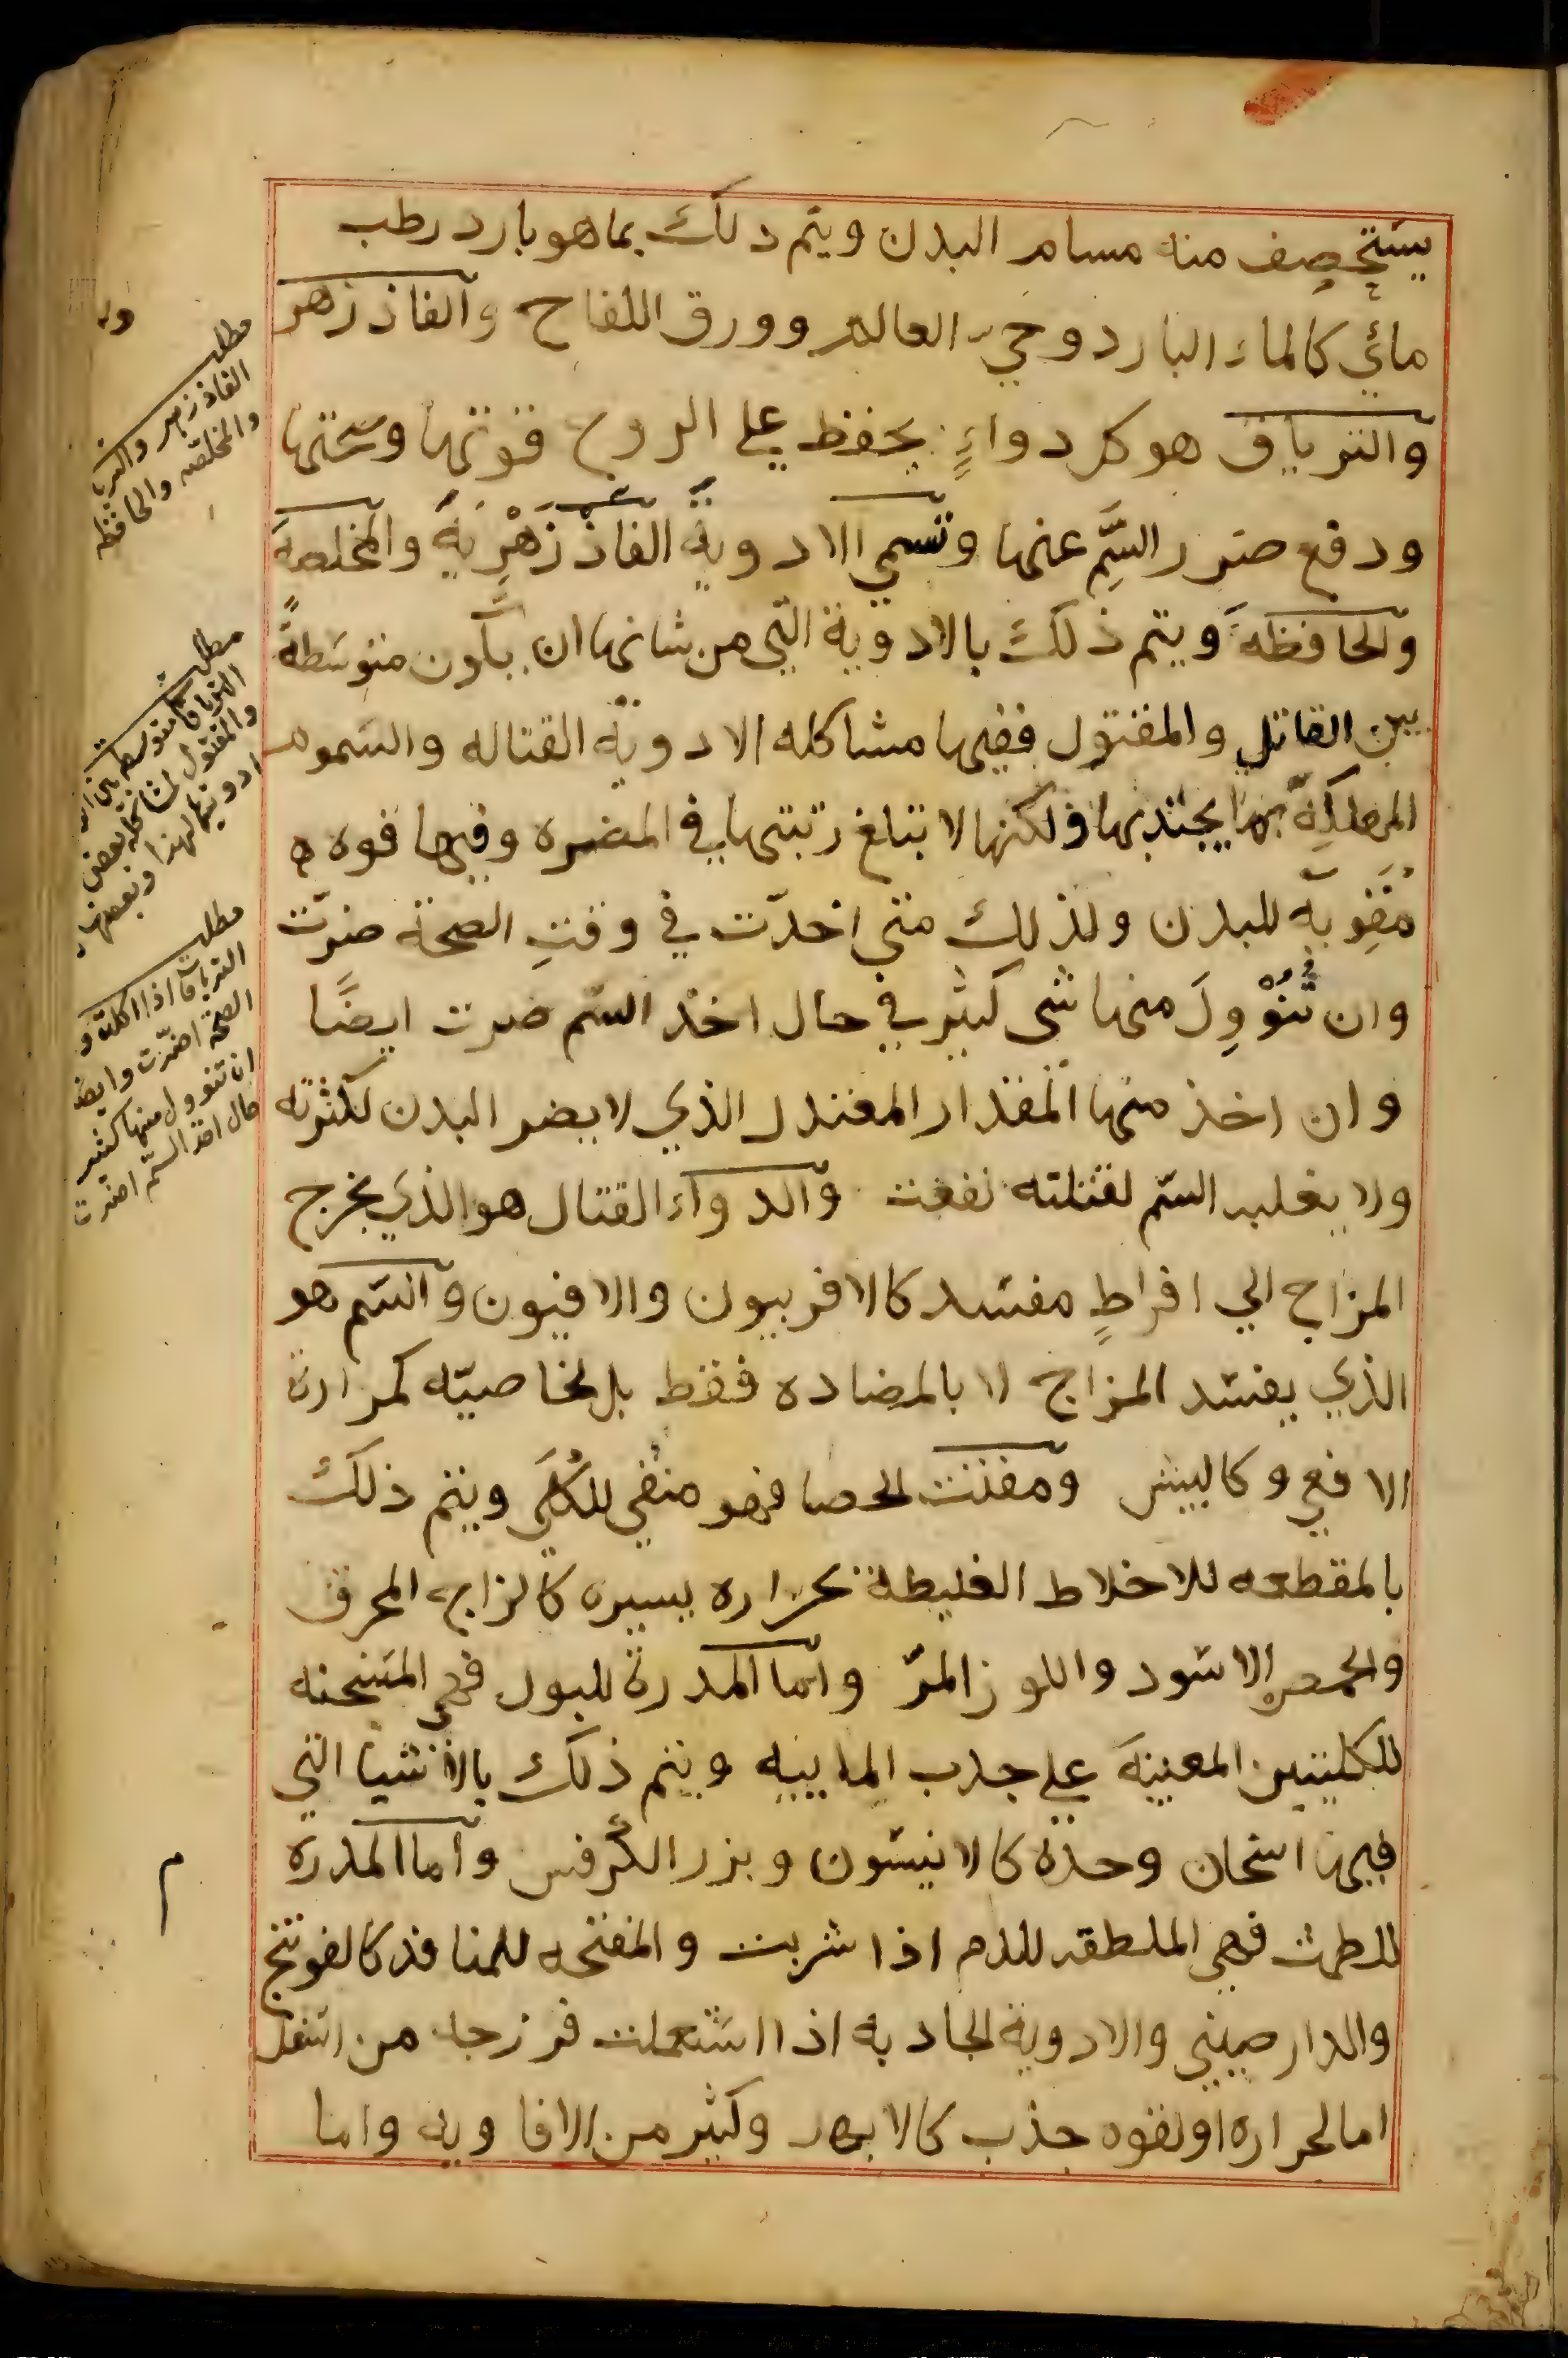 يستحصف منه مسام البدن ويتم دلك بما هو بارد رطب
مائي كالماء البارد وحي العالم وورق اللفاح والفاذ زهر
والترياق هو كل دواءٍ يحفظ على الروح قوتها وصحتها
ودفع ضرر السَّمِ عنها وتسمى الادوية الفاذ زَهْرِية والمخلصة
والحافظة ويتم ذلك بالادوية التي من شانها ان يكون متوسطةً
بين القاتل والمقتول ففيها مشاكله الادوية القتاله والسموم
المهلكة بها يجتذبها ولكنها لا تبلغ رتبتها في المضره وفيها قوه
مُقَوِية للبدن ولذلك متى اخدت في وقتِ الصحة ضرّت
وان تُنُوْوِلَ منها شى كثير في حال اخذ السّم ضرت ايضًا
وان اخذ منها المقدار المعتدل الذي لا يضر البدن لكثرته
ولا يغلبه السّم لقلته نفعت والدواء القتال هو الذي يخرج
المزاج الي افراطٍ مفسد كالافربيون والافيون والسّم هو
الذي يفسد المزاج لا بالمضاده فقط بل بخاصيّه كمرارة
الافعي وكالبيش ومفتت الحصا فهو منقي للكُلَى ويتم ذلك
بالمقطعه للاخلاط الغليظة بحراره يسيره كالزاج المحرق
والحمص الاسود واللوز المرّ واما المدرة للبول فهي المسخنه
للكليتين المعينة على جذب المايييه ويتم ذلك بالاشيا التي
فيها اسخان وحدة كالانيسون وبزر الكرفس واما المدرة
للطمث فهي الملطقه للدم اذا شربت والمفتحه للمنافذ كالفوتنج
والدارصيني والادوية الجاذبه اذا استعملت فرزجه من اسفل
اما لحراره او لقوه جذب كالابهل وكثير من الافاويه واما
مطلب
الفاذ زهر والتريا
والمخلصه والحافظه
مطلب
الترياق متوسط بين
والمقتول لمشاكله بعض
مطلب
الترياق اذا اكلت و
الصحة اضرّت وايضا
ان تنوول منها كثير
حال اخذ السّم اضرت
م